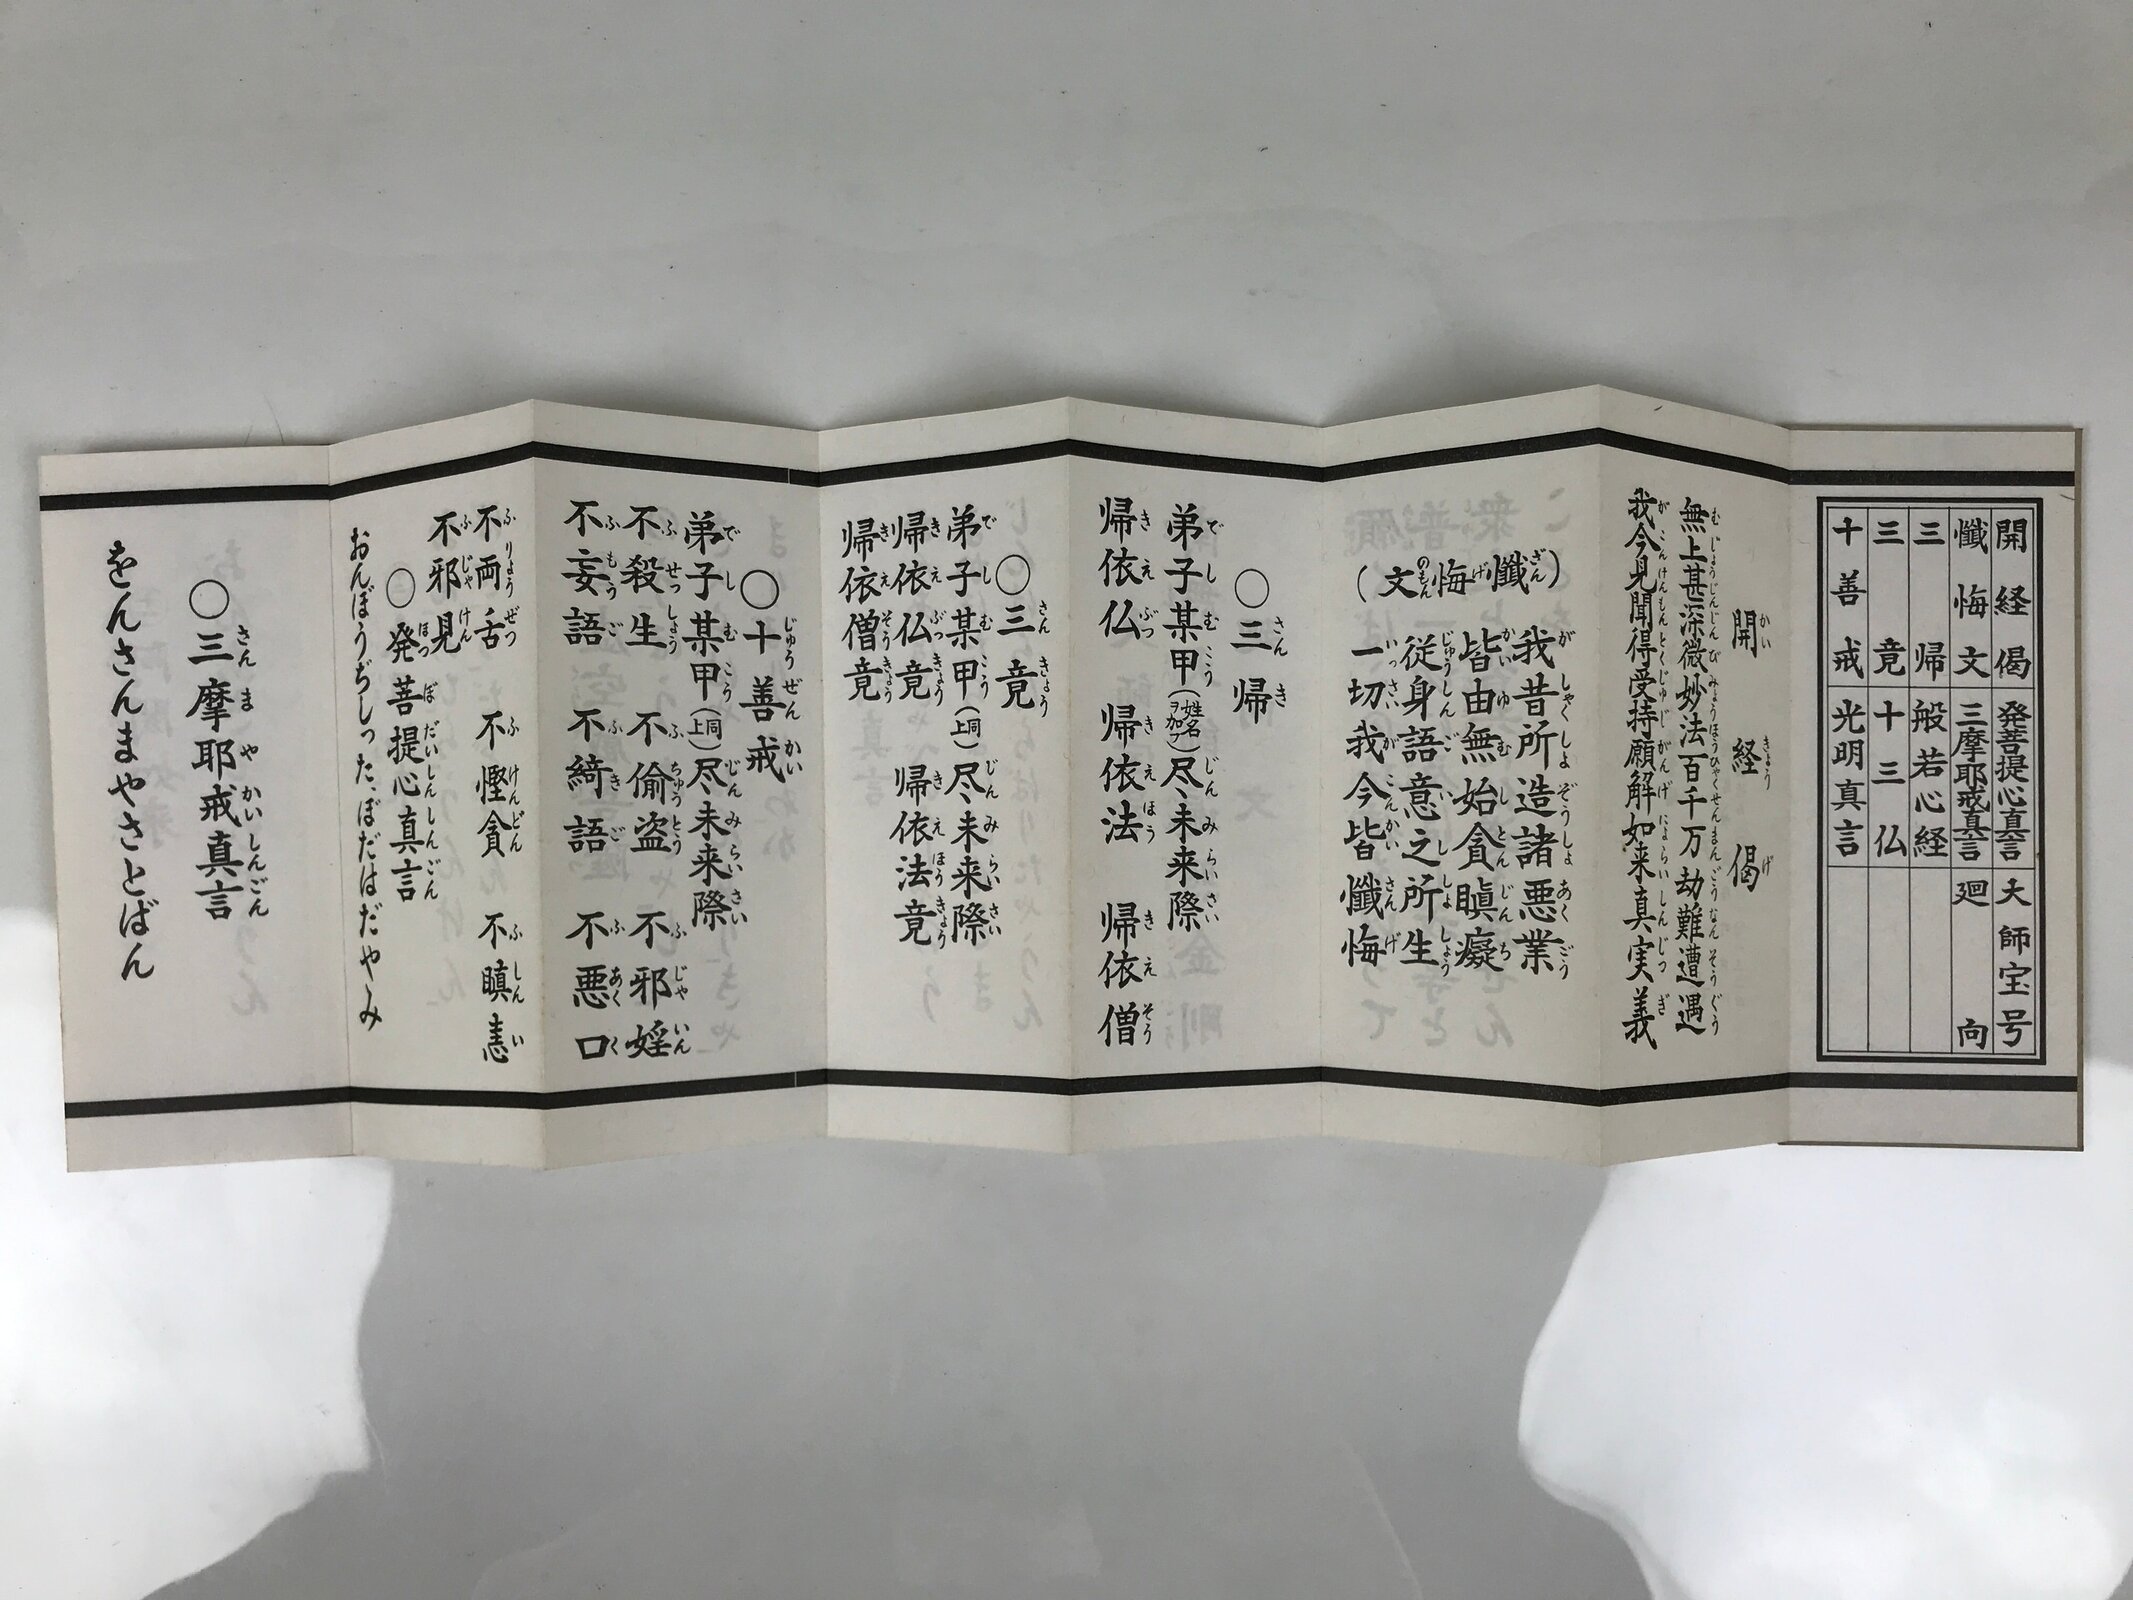 開経偈 発菩提心真言 大師宝号
懺悔文 三摩耶戒真言 廻向
三帰 般若心経
三竟 十三仏
十善戒 光明真言
開経偈
無上甚深微妙法百千万劫難遭遇
我今見聞得受持願解如来真実義
(懺悔文)
我昔所造諸悪業
皆由無始貪瞋癡
従身語意之所生
一切我今皆懺悔
○三帰
弟子某甲(姓名ヲ加フ)尽未来際
帰依仏 帰依法 帰依僧
○三竟
弟子某甲(同上)尽未来際
帰依仏竟 帰依法竟
帰依僧竟
○十善戒
弟子某甲(同上)尽未来際
不殺生 不偸盗 不邪婬
不妄語 不綺語 不悪口
不両舌 不慳貪 不瞋恚
不邪見
○発菩提心真言
おんぼうぢしった、ぼだはだやみ
○三摩耶戒真言
をんさんまやさとばん